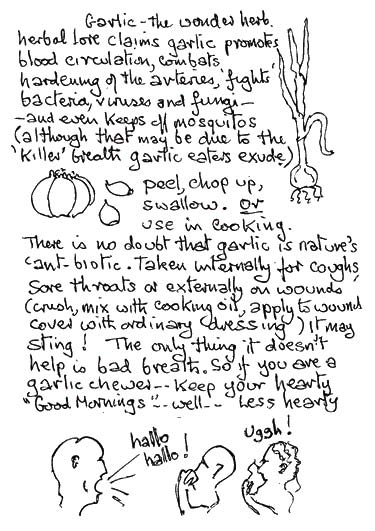 Garlic - the wonder herb.
herbal lore claims garlic promotes
blood circulation, combats
hardening of the arteries, 'fights'
bacteria, viruses and fungi—
—and even keeps off mosquitos
(although that may be due to the
'killer' breath garlic eaters exude)
peel, chop up,
swallow. or
use in cooking.
There is no doubt that garlic is nature's
'ant-biotic. Taken internally for coughs
Sore throats or externally on wounds'
(crush, mix with cooking oil, apply to wound
cover with ordinary dressing) it may
sting! The only thing it doesn't
help is bad breath. So if you are a
garlic chewer -- keep your hearty
"Good Mornings" -- well -- less hearty
hallo
hallo!
Uggh!